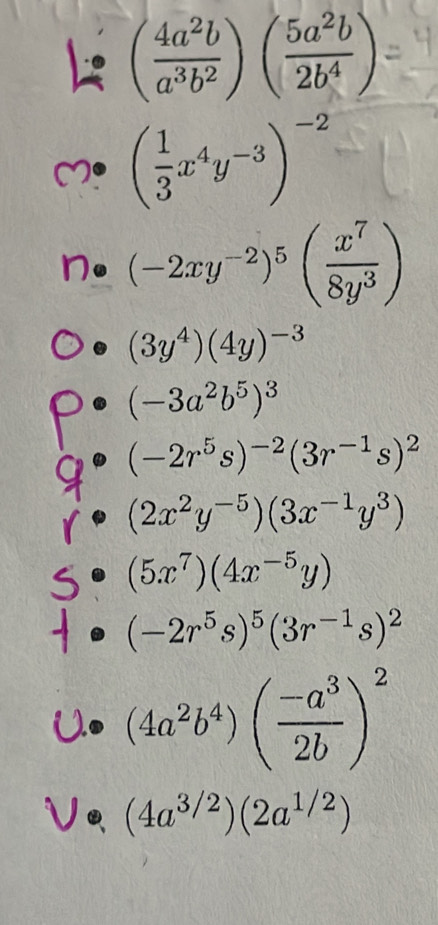 L. (4a²b / a³b²) (5a²b / 2b⁴) =
m. (1/3 x⁴y⁻³)⁻²
n. (-2xy⁻²)⁵ (x⁷ / 8y³)
o. (3y⁴)(4y)⁻³
p. (-3a²b⁵)³
q. (-2r⁵s)⁻²(3r⁻¹s)²
r. (2x²y⁻⁵)(3x⁻¹y³)
s. (5x⁷)(4x⁻⁵y)
t. (-2r⁵s)⁵(3r⁻¹s)²
u. (4a²b⁴) (-a³ / 2b)²
v. (4a^{3/2})(2a^{1/2})